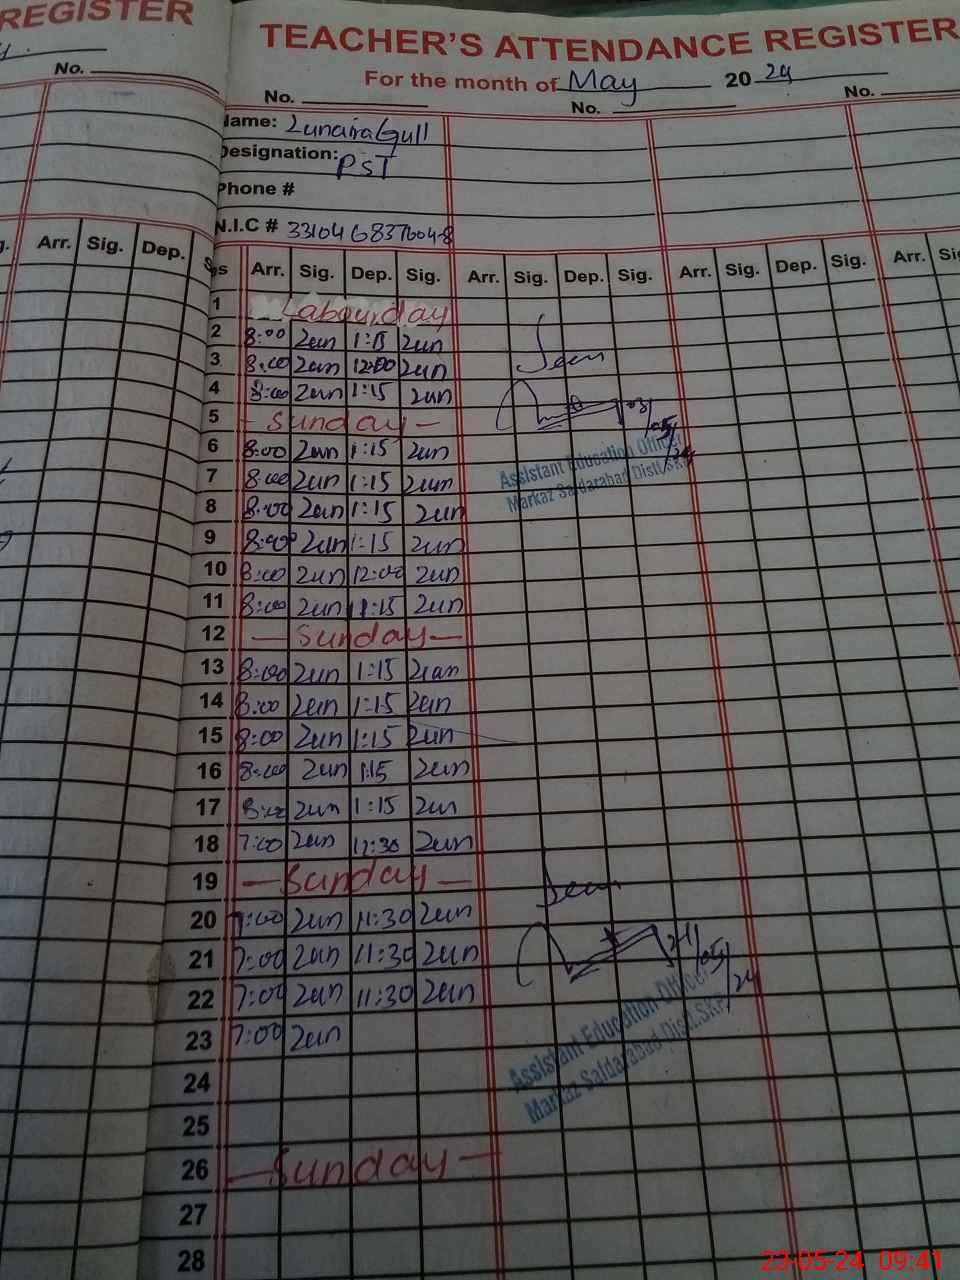 REGISTER
No.
Arr. Sig. Dep.
TEACHER'S ATTENDANCE REGISTER
For the month of May 2024
No. No. No.
Name: Zunaira Gull
Designation: PST
Phone #
N.I.C # 33104 6837604-8
Arr. Sig. Dep. Sig. Arr. Sig. Dep. Sig. Arr. Sig. Dep. Sig. Arr.
1 Labour day
2 8:00 Zun 1:15 Zun
3 8:00 Zun 12:00 Zun
4 8:00 Zun 1:15 Zun
5 - Sunday -
6 8:00 Zun 1:15 Zun
7 8:00 Zun 1:15 Zun
8 8:00 Zun 1:15 Zun
9 8:00 Zun 1:15 Zun
10 8:00 Zun 12:00 Zun
11 8:00 Zun 1:15 Zun
12 — Sunday —
13 8:00 Zun 1:15 Zun
14 8:00 Zun 1:15 Zun
15 8:00 Zun 1:15 Zun
16 8:00 Zun 1:15 Zun
17 8:00 Zun 1:15 Zun
18 7:00 Zun 11:30 Zun
19 — Sunday —
20 7:00 Zun 11:30 Zun
21 7:00 Zun 11:30 Zun
22 7:00 Zun 11:30 Zun
23 7:00 Zun
24
25
26 — Sunday —
27
28
Seen
03/05/24
Assistant Education Officer
Markaz Saidarabad Distt.SKP
Seen
21/05/24
Assistant Education Officer
Markaz Saidarabad Distt.SKP
23-05-24 09:41